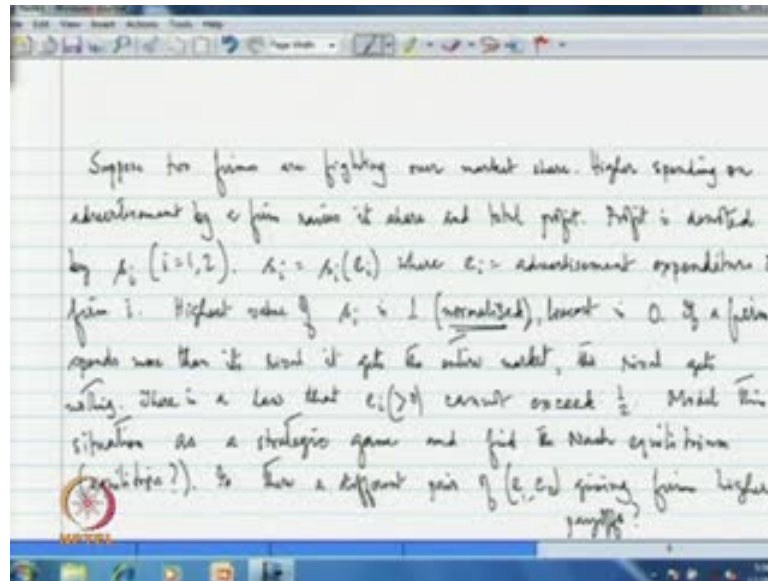 Suppose two firms are fighting over market share. Higher spending on
advertisement by a firm raises its share and total profit. Profit is denoted
by s_i (i=1,2). s_i = s_i(e_i) where e_i = advertisement expenditure
firm i. Highest value of s_i is 1 (normalised), lowest is 0. If a firm
spends more than its rival it gets the entire market, the rival gets
nothing. There is a law that e_i(>0) cannot exceed 1/2. Model this
situation as a strategic game and find the Nash equilibrium
(equilibria?). Is there a different pair of (e_1, e_2) giving firms higher
payoffs?